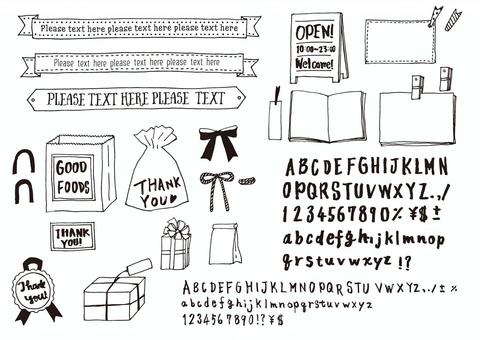 Please text here please text here please text here
Please text here please text here please text here
PLEASE TEXT HERE PLEASE TEXT
OPEN!
10:00~23:00
Welcome!
GOOD
FOODS
THANK
YOU
THANK
YOU!
Thank
you!
ABCDEFGHIJKLMN
OPQRSTUVWXYZ.,/
1234567890% ¥$ ±
abcdefghijklmnop
qrstuvwxyz !?
ABCDEFGHIJKLMNOPQRSTUVWXYZ.,/± %
abcdefghijklmnopqrstuvwxyz
1234567890!? ¥$